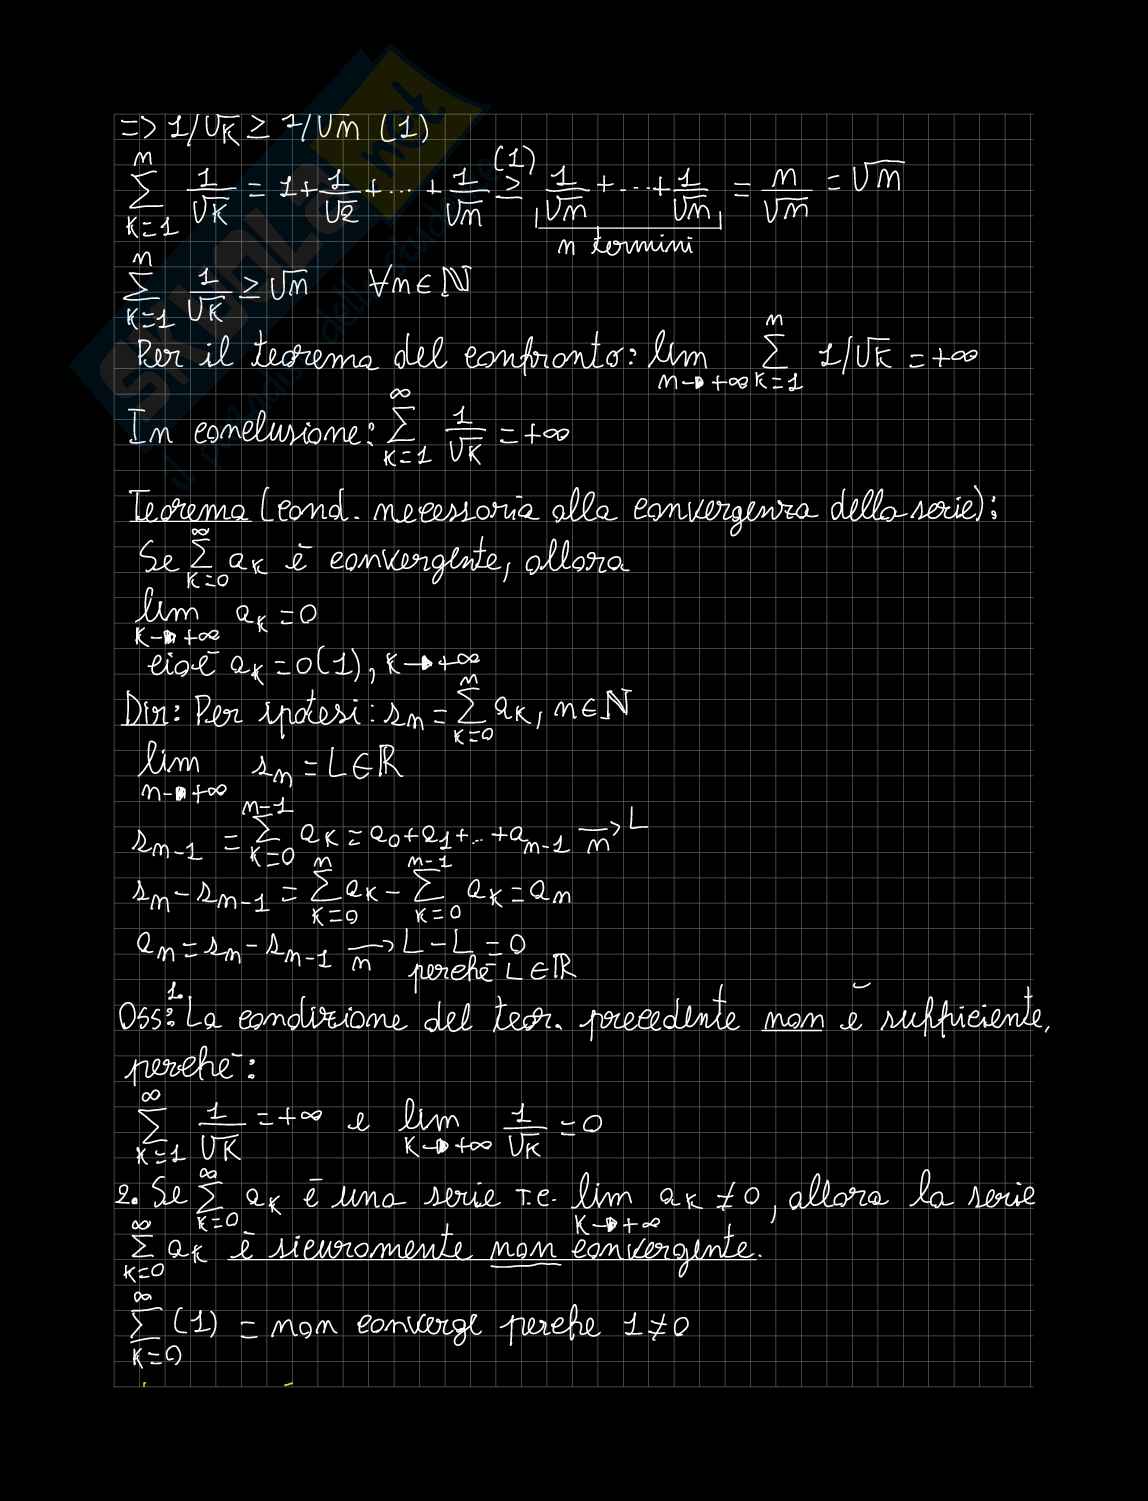 => 1/√K ≥ 1/√n (1)
∑_{K=1}^{n} 1/√K = 1 + 1/√2 + ... + 1/√n ≥^{(1)} 1/√n + ... + 1/√n = n/√n = √n
n termini
∑_{K=1}^{n} 1/√K ≥ √n ∀n ∈ ℕ
Per il teorema del confronto: lim_{n→+∞} ∑_{K=1}^{n} 1/√K = +∞
In conclusione: ∑_{K=1}^{∞} 1/√K = +∞
Teorema (cond. necessaria alla convergenza della serie):
Se ∑_{K=0}^{∞} a_K è convergente, allora
lim_{K→+∞} a_K = 0
cioè a_K = o(1), K→+∞
Dim: Per ipotesi: s_n = ∑_{K=0}^{n} a_K, n ∈ ℕ
lim_{n→+∞} s_n = L ∈ ℝ
s_{n-1} = ∑_{K=0}^{n-1} a_K = a_0 + a_1 + ... + a_{n-1} →_n L
s_n - s_{n-1} = ∑_{K=0}^{n} a_K - ∑_{K=0}^{n-1} a_K = a_n
a_n = s_n - s_{n-1} →_n L - L = 0
perché L ∈ ℝ
Oss: 1. La condizione del teor. precedente non è sufficiente,
perché:
∑_{K=1}^{∞} 1/√K = +∞ e lim_{K→+∞} 1/√K = 0
2. Se ∑_{K=0}^{∞} a_K è una serie T.c. lim_{K→+∞} a_K ≠ 0, allora la serie
∑_{K=0}^{∞} a_K è sicuramente non convergente.
∑_{K=0}^{∞} (1) = non converge perche 1 ≠ 0